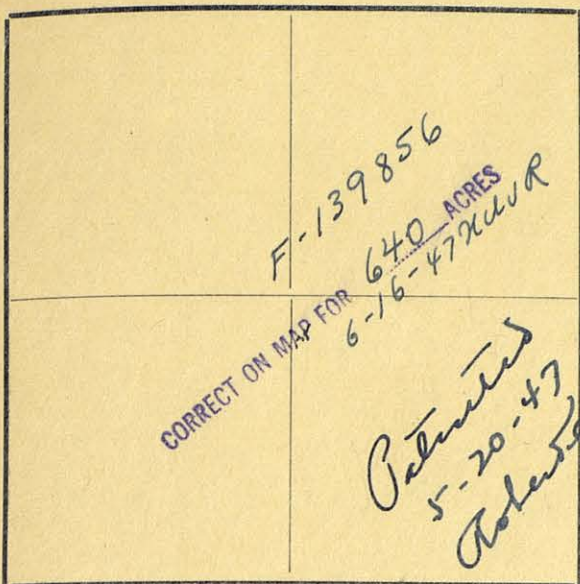 F-139856
CORRECT ON MAP FOR 640 ACRES
6-16-47
Patented
5-20-47